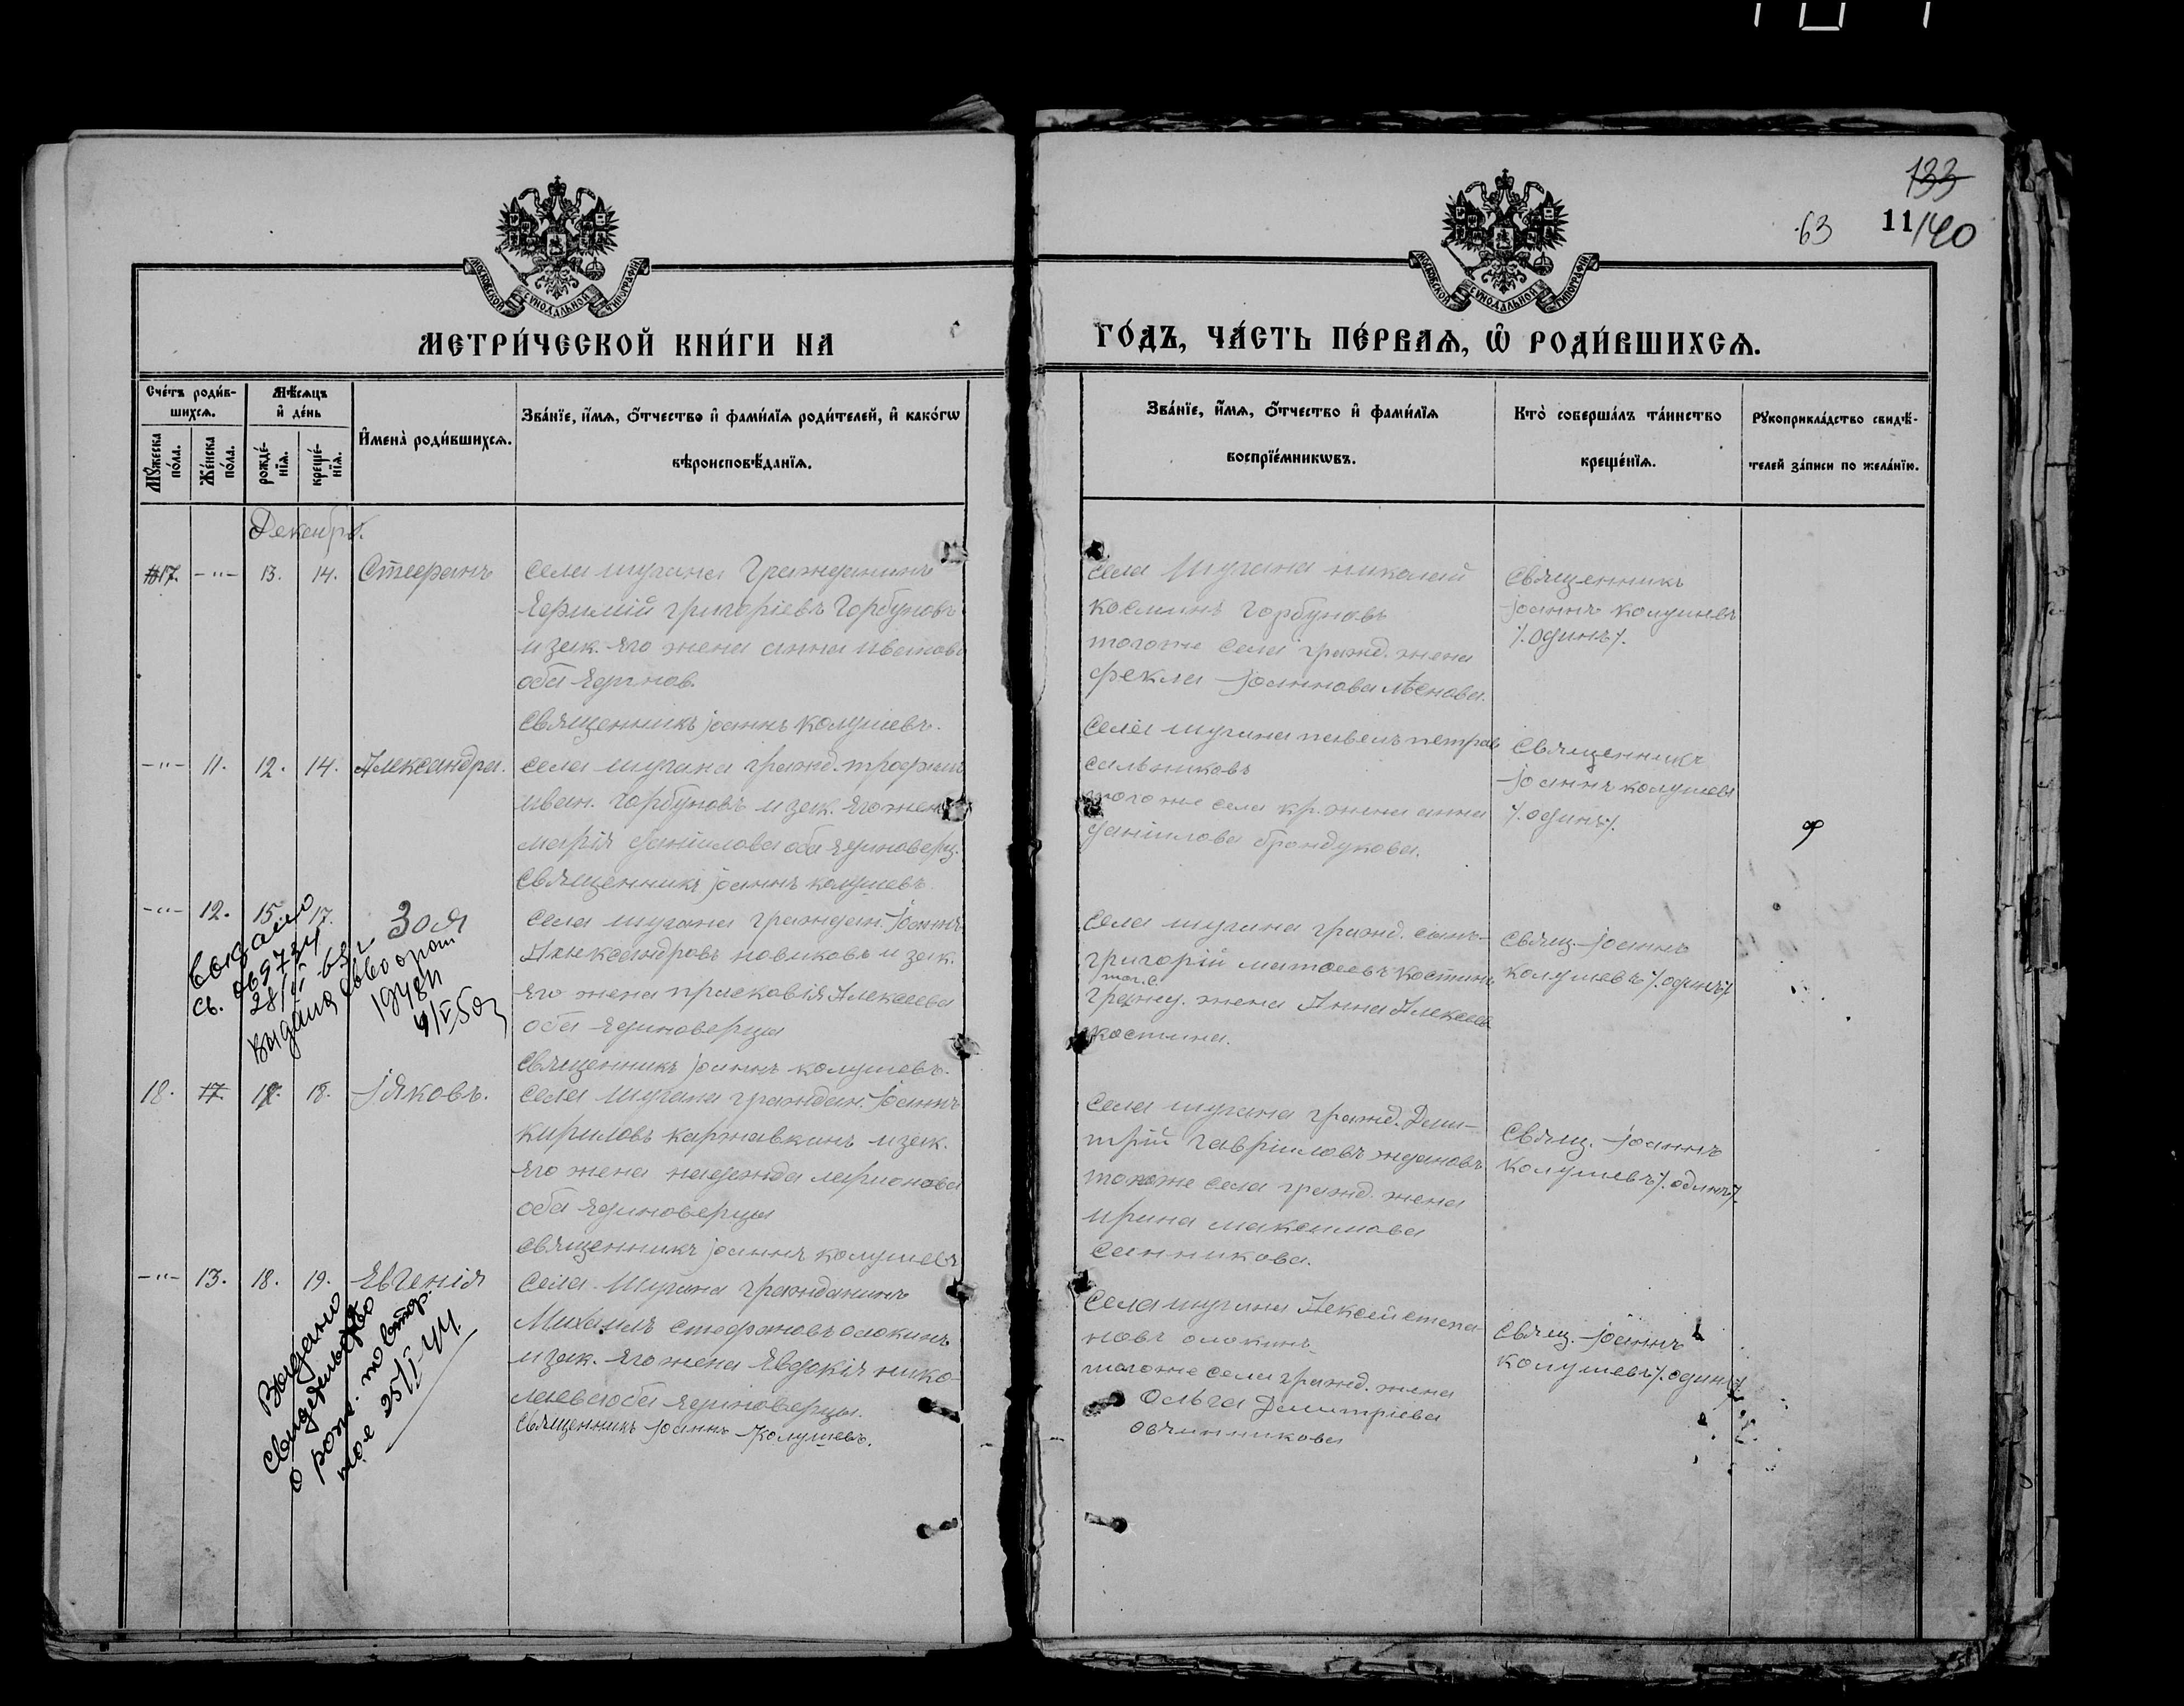 133
63 11/140
МОСКОВСКОЙ СѴНОДАЛЬНОЙ ТИПОГРАФІИ
МОСКОВСКОЙ СѴНОДАЛЬНОЙ ТИПОГРАФІИ
МЕТРИ́ЧЕСКОЙ КНИ́ГИ НА
ГО́ДЪ, ЧА́СТЬ ПЕ́РВАѦ, Ѡ҆ РОДИ́ВШИХСѦ.
Сче́тъ роди́в-
шихсѧ.
Мѣ́сѧцъ
и҆ де́нь
Мꙋ́жеска
по́ла.
Же́нска
по́ла.
рожде́-
нїѧ.
креще́-
нїѧ.
И҆мена̀ роди́вшихсѧ.
Зва́нїе, и҆́мѧ, ѻ҆́тчество и҆ фами́лїѧ роди́телей, и҆ како́гѡ
вѣроисповѣ́данїѧ.
Зва́нїе, и҆́мѧ, ѻ҆́тчество и҆ фами́лїѧ
воспрїе́мникѡвъ.
Кто̀ соверша́лъ та́инство
креще́нїѧ.
Рꙋкоприкла́дство свидѣ́-
телей за́писи по жела́нїю.
Декабрь.
17. -"- 13. 14. Стефанъ
села шугана Гражданинъ
Ефимій григоріевъ Горбуновъ
и зак. его жена анна иванова
оба единов.
Священникъ іоаннъ Колушевъ.
села Шугана николай
косминъ Горбуновъ
тогоже села гражд. жена
фекла іоаннова
Священникъ
іоаннъ колушевъ
/.одинъ/.
-"- 11. 12. 14. Александра.
села шугана гражд. трофим
иван. Горбуновъ и зак. его жена
марія даніилова оба единоверц.
Священникъ іоаннъ колушевъ.
села шугана павелъ петров
сальниковъ
того же села кр. жена анна
даніилова брондукова.
Священникъ
іоаннъ колушевъ
/.одинъ/.
-"- 12. 15. 17. Зоя
села шугана граждан. іоаннъ
Александровъ новиковъ и зак.
его жена прасковія Алексеева
оба единоверцы
Священникъ іоаннъ колушевъ.
села шугана гражд. сынъ
григорій матвеевъ костинъ
тог. с.
гражд. жена Анна Алексеева
костина.
Свящ. іоаннъ
колушевъ /.одинъ/.
св.
28/
выдана
18. 17. 17. 18. іаковъ.
села шугана граждан. іоаннъ
кириловъ каржавкинъ и зак.
его жена надежда ларионова
оба единоверцы
Священникъ іоаннъ колушевъ
села шугана гражд. Дими-
трій гавріиловъ ждановъ
тогоже села гражд. жена
ирина максимова
санникова.
Свящ. іоаннъ
колушевъ /.одинъ/.
-"- 13. 18. 19. Евгенія
села Шугана гражданинъ
Михаилъ стефановъ олокинъ
и зак. его жена Евдокія нико-
лаева оба единоверцы.
Священникъ іоаннъ Колушевъ.
села шугана Алексей степа-
новъ олокинъ
тогоже села гражд. жена
Ольга Димитріева
овчинникова
Свящ. іоаннъ
колушевъ /.один/.
Выдано
свидетельство
о рож. повтор-
ное 25/I-44.